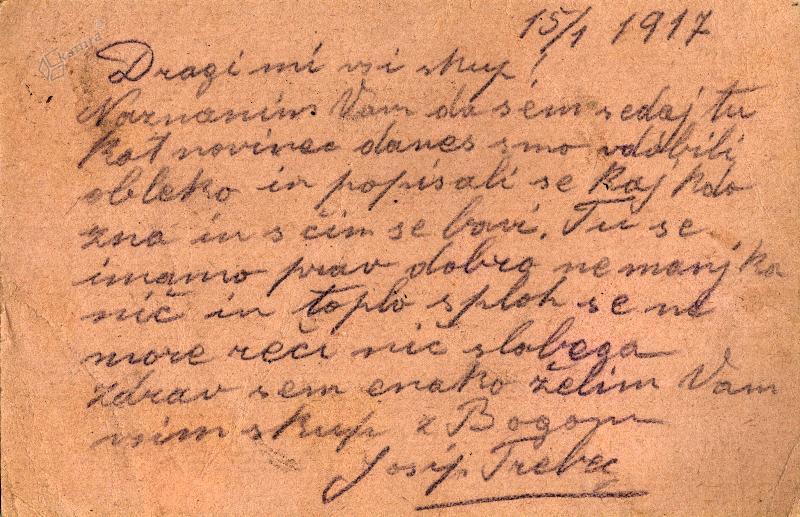 15/1 1917
Dragi mi vsi skup!
Naznanim Vam da sem sedaj tu
kot novinec danes smo vdobili
obleko in popisali se kaj kdo
zna in s čim se bavi. Tu se
imamo prav dobro ne manjka
nič in toplo sploh se ne
more reči nič slabega
zdrav sem enako želim Vam
vsim skup z Bogom
Josip Trebec
kamra